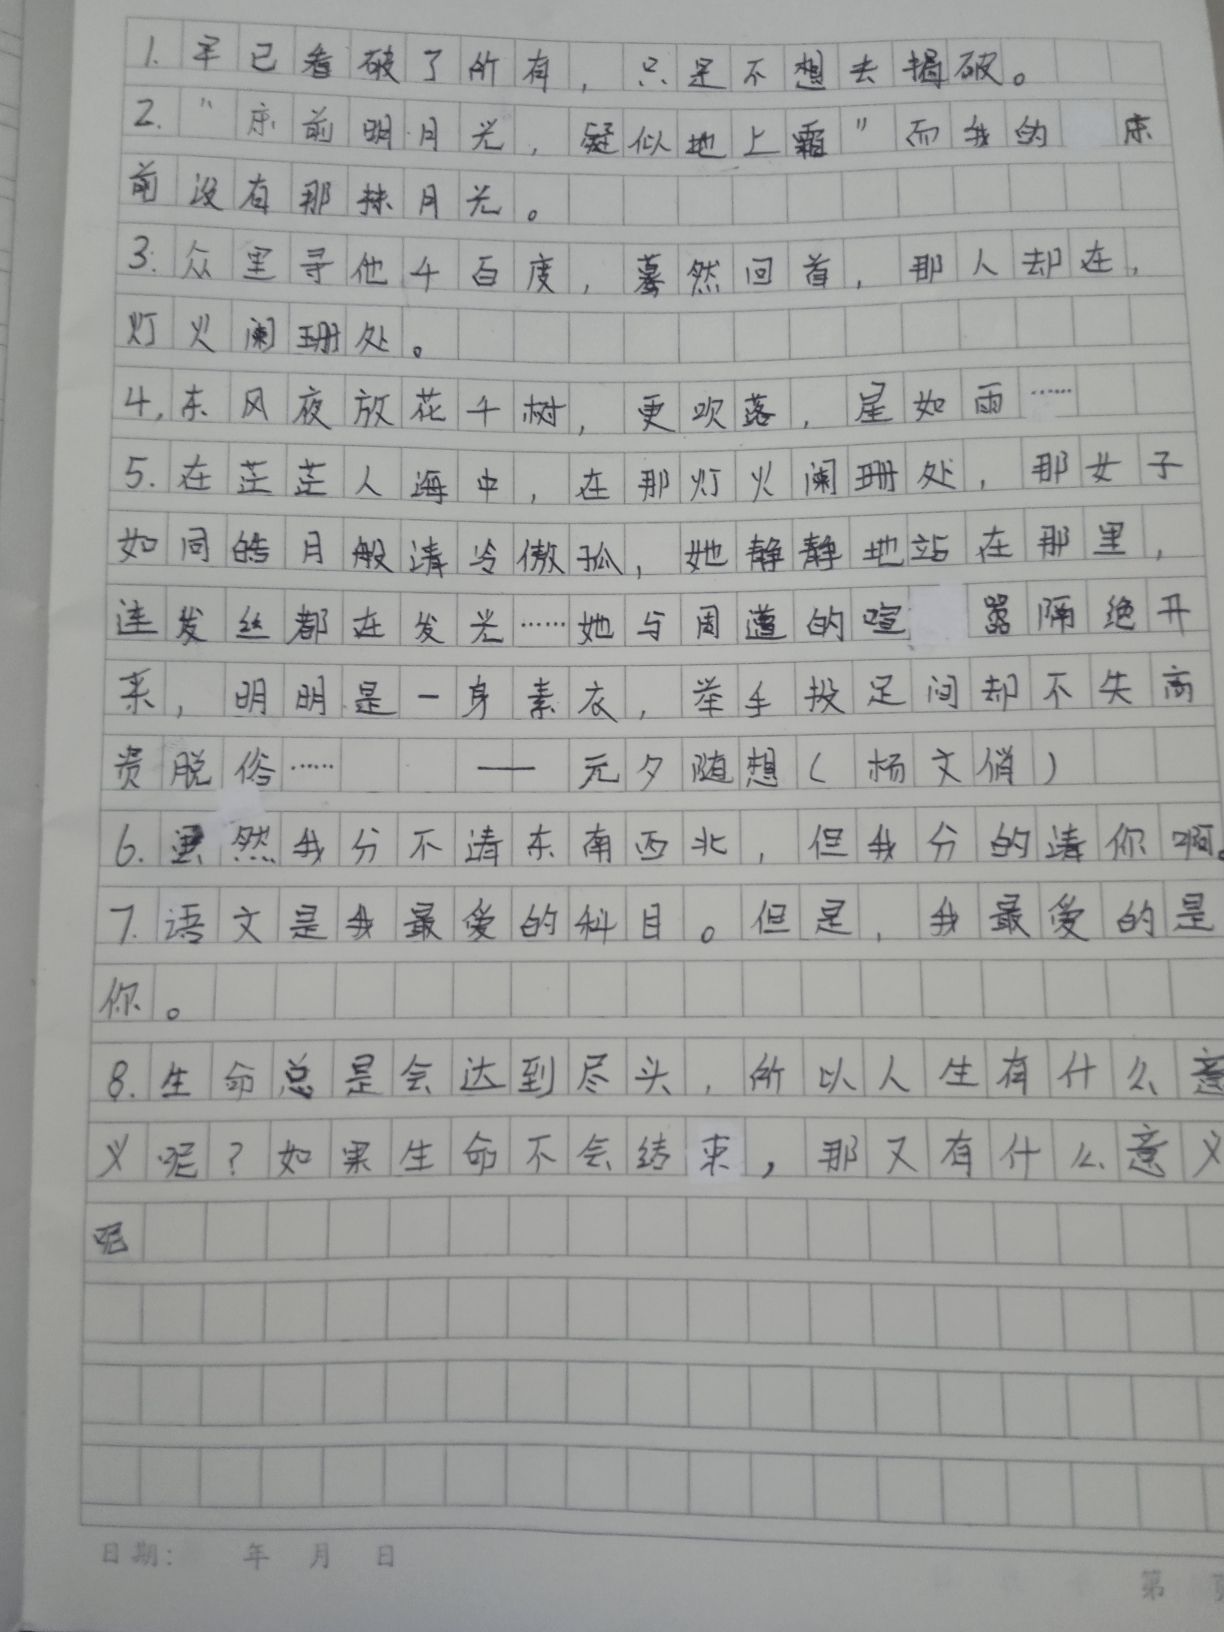 1. 早已看破了所有，只是不想去揭破。
2. "床前明月光，疑似地上霜"而我的床
前没有那抹月光。
3. 众里寻他千百度，蓦然回首，那人却在，
灯火阑珊处。
4, 东风夜放花千树，更吹落，星如雨……
5. 在茫茫人海中，在那灯火阑珊处，那女子
如同皓月般清冷傲孤，她静静地站在那里，
连发丝都在发光……她与周遭的喧嚣隔绝开
来，明明是一身素衣，举手投足间却不失高
贵脱俗…… —— 元夕随想（杨文俏）
6. 虽然我分不清东南西北，但我分的清你啊。
7. 语文是我最爱的科目。但是，我最爱的是
你。
8. 生命总是会达到尽头，所以人生有什么意
义呢？如果生命不会结束，那又有什么意义
呢
日期： 年 月 日
第